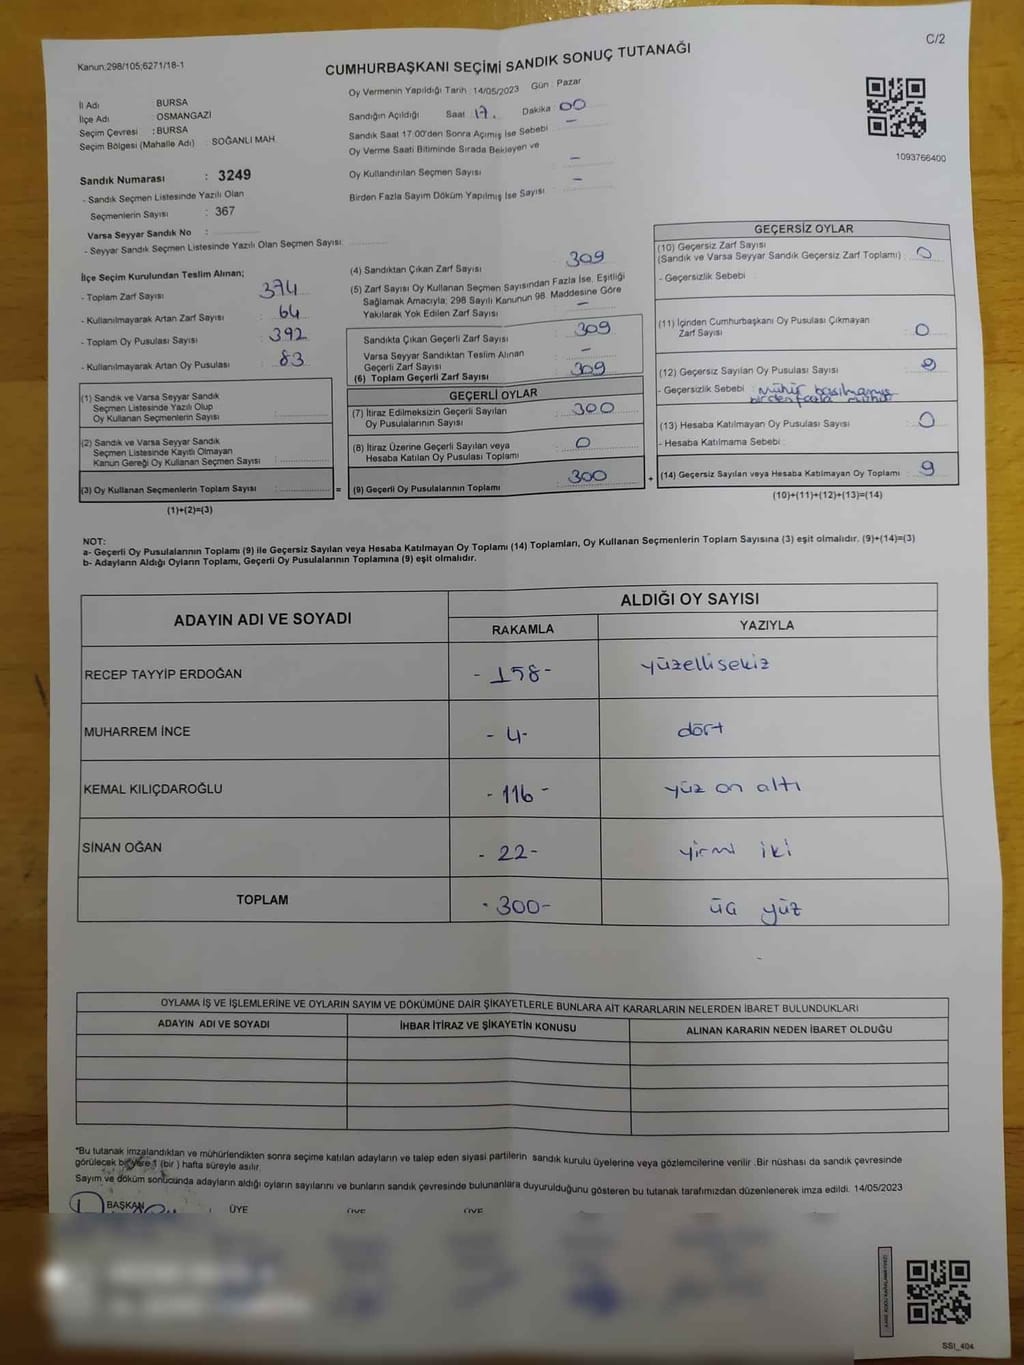 C/2
Kanun:298/105;6271/18-1
CUMHURBAŞKANI SEÇİMİ SANDIK SONUÇ TUTANAĞI
İl Adı BURSA
İlçe Adı : OSMANGAZİ
Seçim Çevresi : BURSA
Seçim Bölgesi (Mahalle Adı) : SOĞANLI MAH.
Sandık Numarası : 3249
- Sandık Seçmen Listesinde Yazılı Olan
Seçmenlerin Sayısı : 367
Varsa Seyyar Sandık No :
- Seyyar Sandık Seçmen Listesinde Yazılı Olan Seçmen Sayısı:
Oy Vermenin Yapıldığı Tarih : 14/05/2023 Gün : Pazar
Sandığın Açıldığı Saat 17. Dakika 00
Sandık Saat 17:00'den Sonra Açılmış İse Sebebi –
Oy Verme Saati Bitiminde Sırada Bekleyen ve
Oy Kullandırılan Seçmen Sayısı –
Birden Fazla Sayım Döküm Yapılmış İse Sayısı –
1093766400
İlçe Seçim Kurulundan Teslim Alınan;
- Toplam Zarf Sayısı 374
- Kullanılmayarak Artan Zarf Sayısı : 64
- Toplam Oy Pusulası Sayısı : 392
- Kullanılmayarak Artan Oy Pusulası : 83
(1) Sandık ve Varsa Seyyar Sandık
Seçmen Listesinde Yazılı Olup
Oy Kullanan Seçmenlerin Sayısı :
(2) Sandık ve Varsa Seyyar Sandık
Seçmen Listesinde Kayıtlı Olmayan
Kanun Gereği Oy Kullanan Seçmen Sayısı :
(3) Oy Kullanan Seçmenlerin Toplam Sayısı :
(1)+(2)=(3)
=
(4) Sandıktan Çıkan Zarf Sayısı 309
(5) Zarf Sayısı Oy Kullanan Seçmen Sayısından Fazla İse, Eşitliği
Sağlamak Amacıyla; 298 Sayılı Kanunun 98. Maddesine Göre
Yakılarak Yok Edilen Zarf Sayısı –
Sandıkta Çıkan Geçerli Zarf Sayısı : 309
Varsa Seyyar Sandıktan Teslim Alınan
Geçerli Zarf Sayısı : –
(6) Toplam Geçerli Zarf Sayısı : 309
GEÇERLİ OYLAR
(7) İtiraz Edilmeksizin Geçerli Sayılan
Oy Pusulalarının Sayısı : 300
(8) İtiraz Üzerine Geçerli Sayılan veya
Hesaba Katılan Oy Pusulası Toplamı : 0
(9) Geçerli Oy Pusulalarının Toplamı : 300
+
GEÇERSİZ OYLAR
(10) Geçersiz Zarf Sayısı
(Sandık ve Varsa Seyyar Sandık Geçersiz Zarf Toplamı) : 0
- Geçersizlik Sebebi :
(11) İçinden Cumhurbaşkanı Oy Pusulası Çıkmayan
Zarf Sayısı : 0
(12) Geçersiz Sayılan Oy Pusulası Sayısı : 9
- Geçersizlik Sebebi : mühür basılmamış
birden fazla mühür
(13) Hesaba Katılmayan Oy Pusulası Sayısı : 0
- Hesaba Katılmama Sebebi :
(14) Geçersiz Sayılan veya Hesaba Katılmayan Oy Toplamı : 9
(10)+(11)+(12)+(13)=(14)
NOT:
a- Geçerli Oy Pusulalarının Toplamı (9) ile Geçersiz Sayılan veya Hesaba Katılmayan Oy Toplamı (14) Toplamları, Oy Kullanan Seçmenlerin Toplam Sayısına (3) eşit olmalıdır. (9)+(14)=(3)
b- Adayların Aldığı Oyların Toplamı, Geçerli Oy Pusulalarının Toplamına (9) eşit olmalıdır.
ADAYIN ADI VE SOYADI ALDIĞI OY SAYISI
RAKAMLA YAZIYLA
RECEP TAYYİP ERDOĞAN - 158 - yüzellisekiz
MUHARREM İNCE - 4 - dört
KEMAL KILIÇDAROĞLU - 116 - yüz on altı
SİNAN OĞAN - 22 - yirmi iki
TOPLAM - 300 - üç yüz
OYLAMA İŞ VE İŞLEMLERİNE VE OYLARIN SAYIM VE DÖKÜMÜNE DAİR ŞİKAYETLERLE BUNLARA AİT KARARLARIN NELERDEN İBARET BULUNDUKLARI
ADAYIN ADI VE SOYADI İHBAR İTİRAZ VE ŞİKAYETİN KONUSU ALINAN KARARIN NEDEN İBARET OLDUĞU
*Bu tutanak imzalandıktan ve mühürlendikten sonra seçime katılan adayların ve talep eden siyasi partilerin sandık kurulu üyelerine veya gözlemcilerine verilir. Bir nüshası da sandık çevresinde
görülecek bir yere 1 (bir) hafta süreyle asılır.
Sayım ve döküm sonucunda adayların aldığı oyların sayılarını ve bunların sandık çevresinde bulunanlara duyurulduğunu gösteren bu tutanak tarafımızdan düzenlenerek imza edildi. 14/05/2023
BAŞKAN ÜYE ÜYE ÜYE
SSI_404